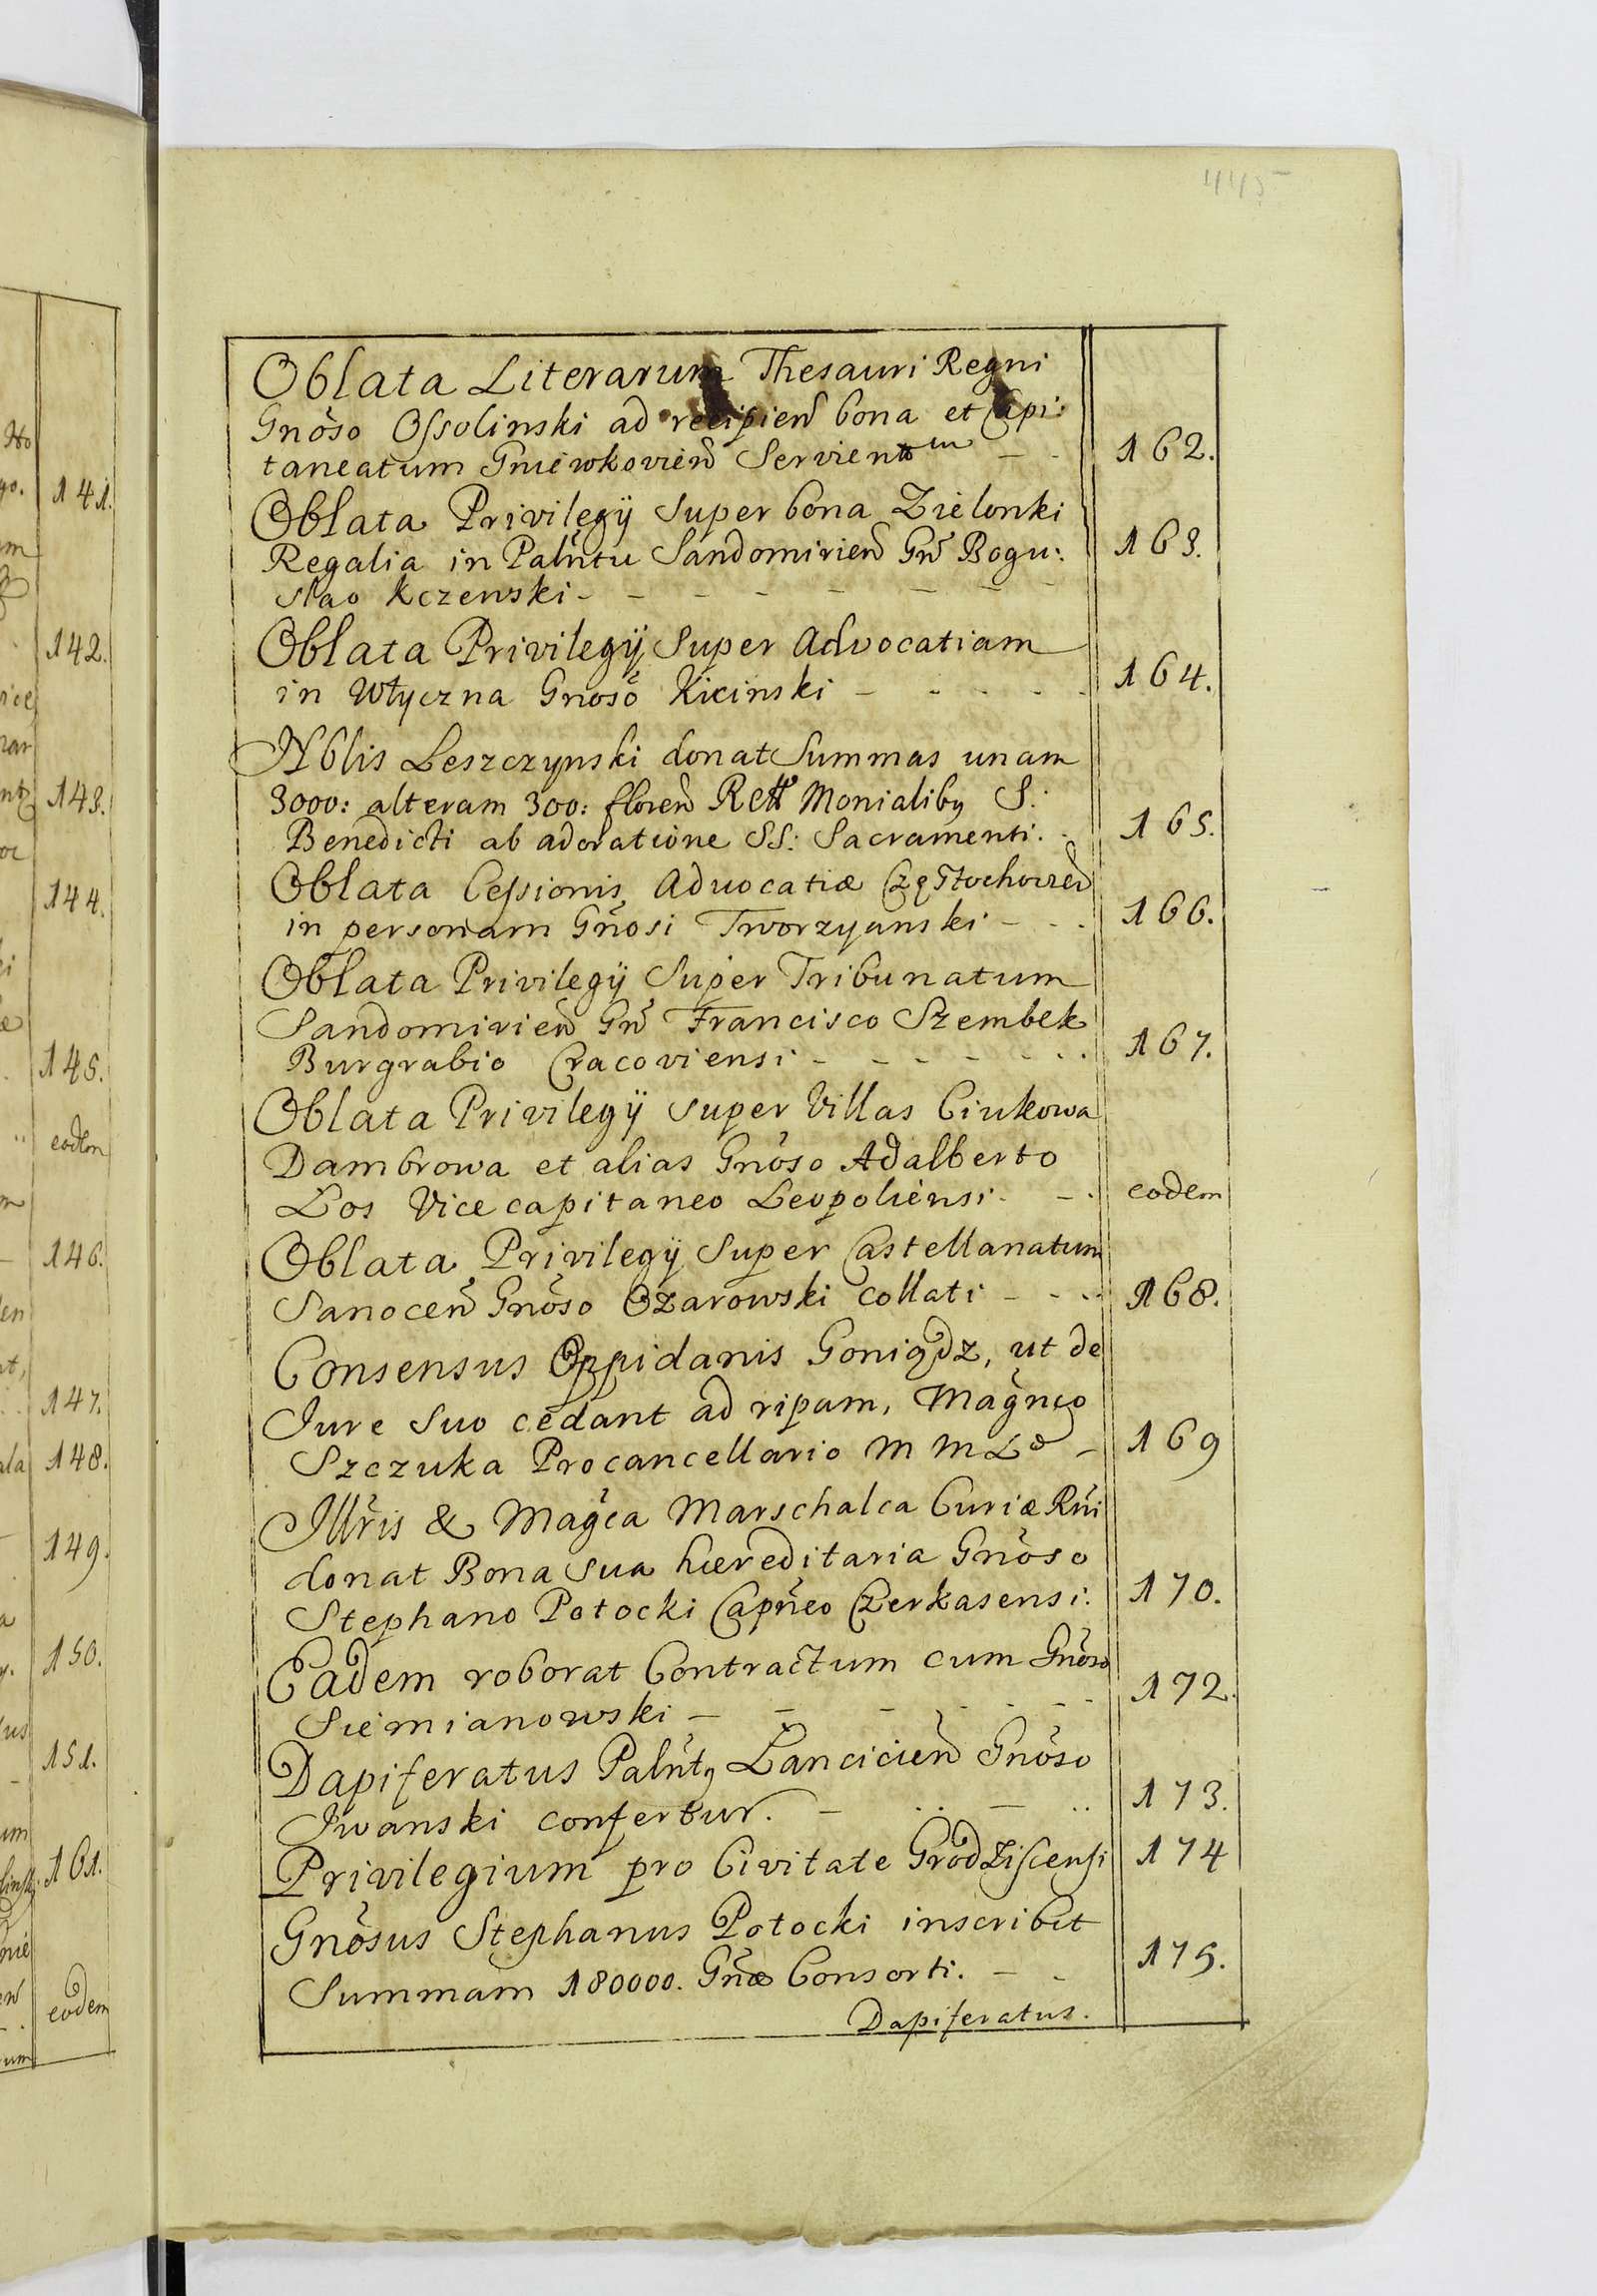 445
Oblata Literarum Thesauri Regni
Gnoso Ossolinski ad recipien bona et Capi:
taneatum Gniewkovien Servien
162.
Oblata Privilegÿ super bona Zielonki
Regalia in Palntu Sandomirien Gn Bogu:
163.
slao Kczewski - - - - - - -
Oblata Privilegÿ Super Advocatiam
in Wtyczna Gnoso Kicinski - - - - -
164.
Nblis Leszczynski donat Summas unam
3000: alteram 300: floren Monialibq S:
Benedicti ab adoratione SS: Sacramenti.
165.
Oblata Cessionis Advocatiæ Częstochovien
in personam Gnosi Tworzyanski - - .
166.
Oblata Privilegÿ Super Tribunatum
Sandomirien Gn Francisco Szembek
Burgrabio Cracoviensi - - - - - - .
167.
Oblata Privilegÿ super Villas Ciukowa
Dambrowa et alias Gnoso Adalberto
Los Vice capitaneo Leopoliensi. - .
eodem
Oblata Privilegÿ Super Castellanatum
Sanocen Gnoso Ozarowski collati - - ..
168.
Consensus Oppidanis Goniądz, ut de
Jure suo cedant ad ripam, Magnco
Szczuka Procancellario M M L -
169
Illris & Magca Marschalca Curiæ Rni
donat Bona sua hæreditaria Gnoso
Stephano Potocki Capneo Czerkasensi.
170.
Eadem roborat Contractum cum Gnoso
Siemianowski - - - - - - -
172.
Dapiferatus Palntq Lancicien Gnoso
Iwanski confertur. - .. - ..
173.
Privilegium pro Civitate Grodziscensi
174
Gnosus Stephanus Potocki inscribit
Summam 180000. Gnæ Consorti. - -
175.
Dapiferatus.
141.
142.
143.
144.
145.
eodem
146.
147.
148.
149.
150.
151.
161.
eodem